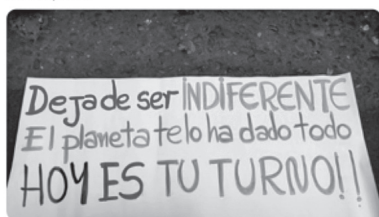 Deja de ser INDIFERENTE
El planeta te lo ha dado todo
HOY ES TU TURNO!!